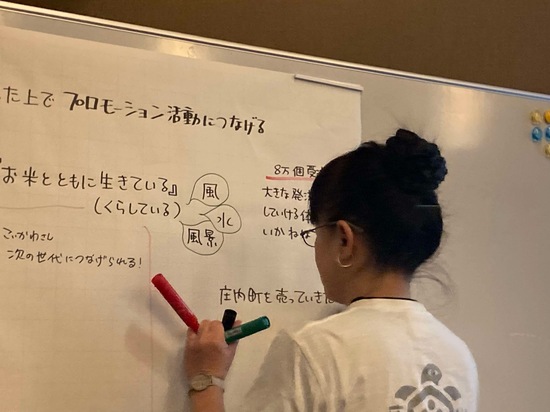 た上で プロモーション活動につなげる
『お米とともに生きている』
(くらしている)
風
水
風景
次の世代につなげられる!
8万個
大きな発
している
いかねば
庄内町を売っていきた